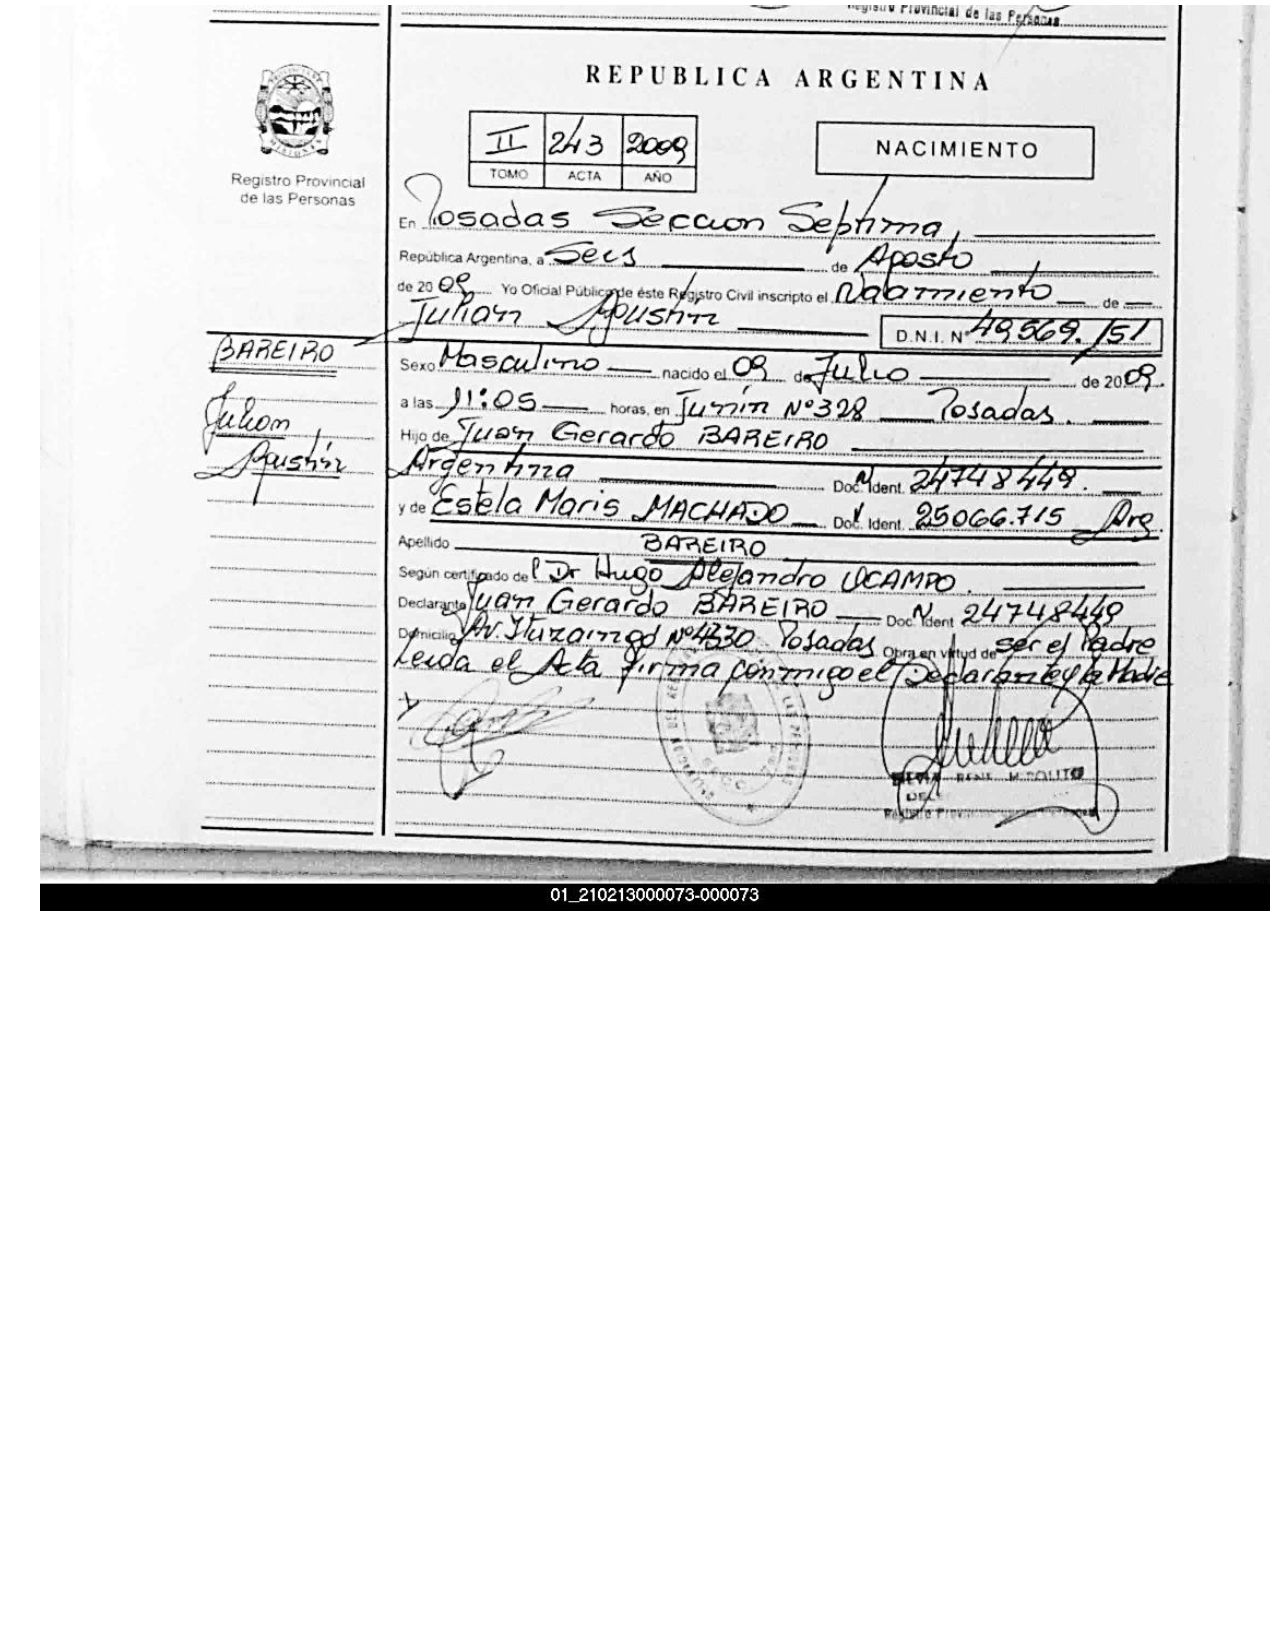 Registro Provincial de las Personas
REPUBLICA ARGENTINA
II 243 2009
TOMO ACTA AÑO
NACIMIENTO
Registro Provincial
de las Personas
En Posadas Seccion Septima,
República Argentina, a Seis de Agosto
de 2009 Yo Oficial Público de éste Registro Civil inscripto el Nacimiento de
Julian Agustin D.N.I. Nº 49.569.151
BAREIRO
Julian
Agustin
Sexo Masculino nacido el 09 de Julio de 2009.
a las 11:05 horas, en Junin Nº 328 Posadas.
Hijo de Juan Gerardo BAREIRO
Argentina Doc. Ident. 24748449.
y de Estela Maris MACHADO Doc. Ident. 25066.715 Arg.
Apellido BAREIRO
Según certificado del Dr Hugo Alejandro OCAMPO.
Declarante Juan Gerardo BAREIRO Doc. Ident 24748449
Domicilio Av. Ituzaingo Nº 4330 Posadas Obra en virtud de ser el Padre
Leida el Acta firma conmigo el Declarante y la Madre
01_210213000073-000073